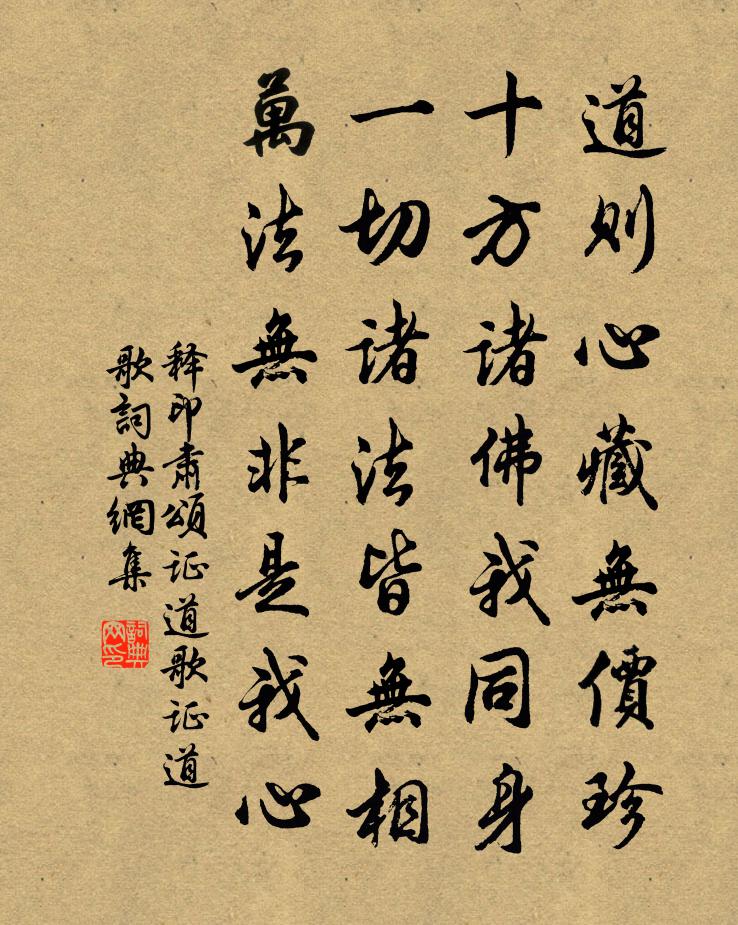 道則心藏無價珍
十方諸佛我同身
一切諸法皆無相
萬法無非是我心
释印肅頌证道歌证道
歌詞典網集
詞典网印